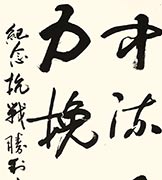 中流
力挽
紀念抗戰勝利